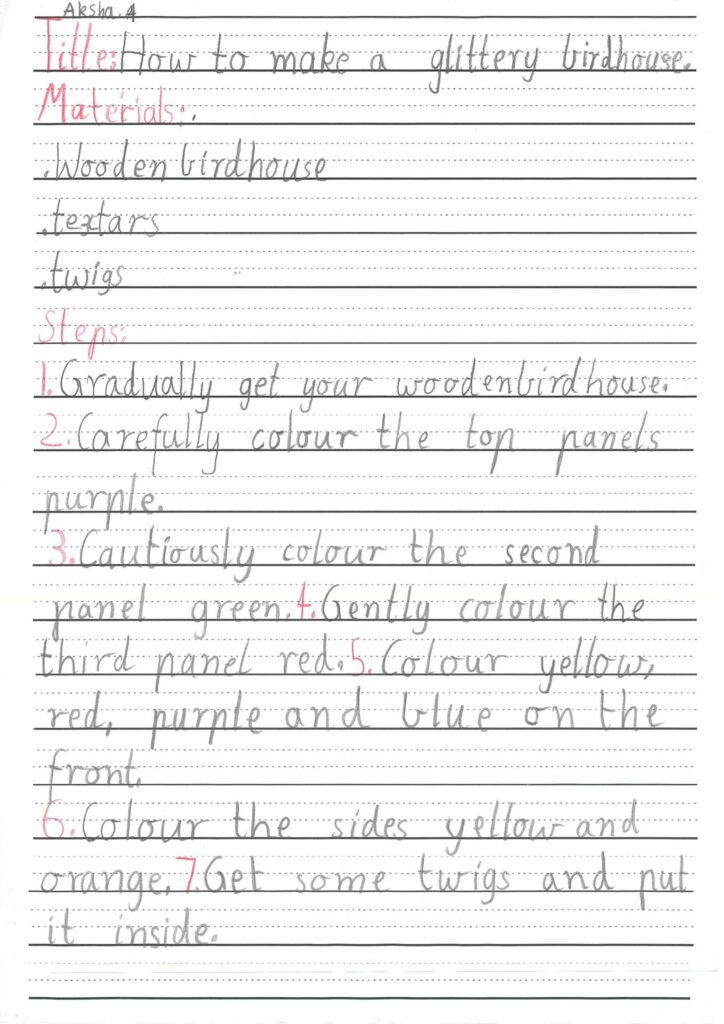 Aksha. 4
Title: How to make a glittery birdhouse.
Materials:.
.Wooden birdhouse
.textars
.twigs
Steps:
1. Gradually get your woodenbirdhouse.
2. Carefully colour the top panels
purple.
3. Cautiously colour the second
panel green. 4. Gently colour the
third panel red. 5. Colour yellow,
red, purple and blue on the
front.
6. Colour the sides yellow and
orange. 7. Get some twigs and put
it inside.